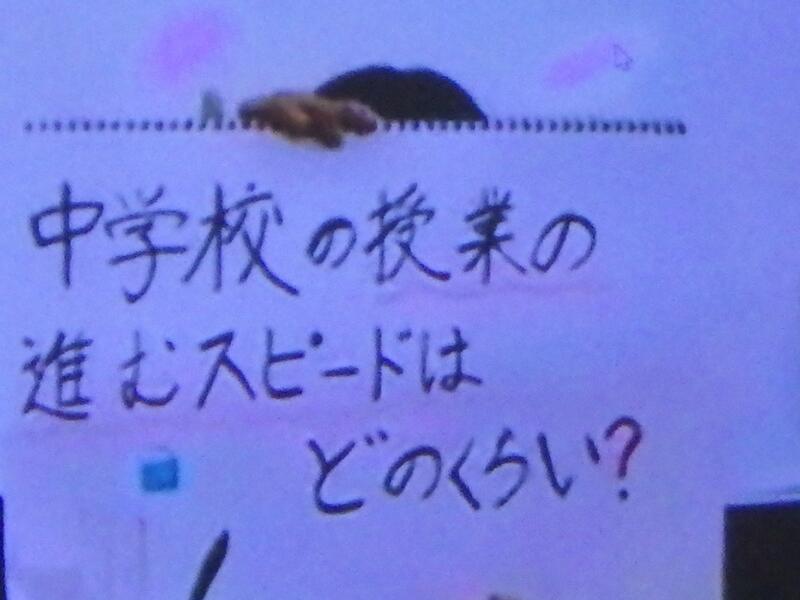 中学校の授業の
進むスピードは
どのくらい?